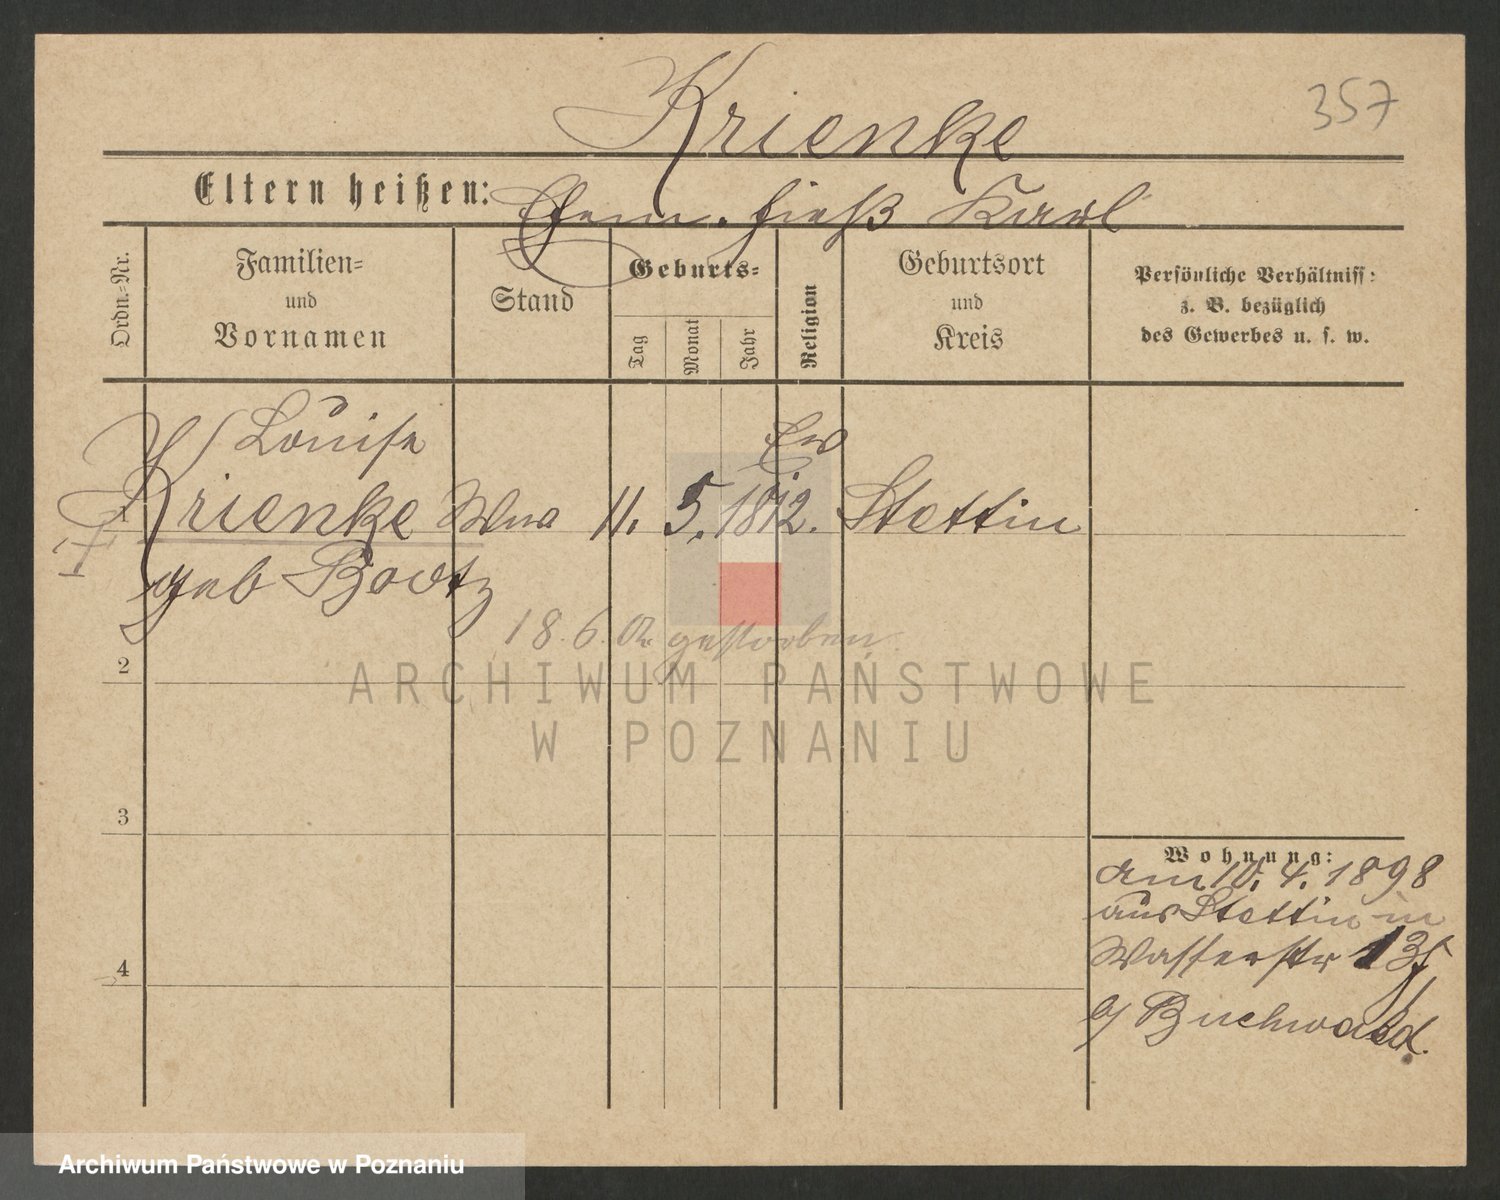 Krienke
357
Eltern heißen: Ehem. hieß Karl
Ordn.-Nr.
Familien-
und
Vornamen
Stand
Geburts-
Tag
Monat
Jahr
Religion
Geburtsort
und
Kreis
Persönliche Verhältniss:
z. B. bezüglich
des Gewerbes u. s. w.
Louise
Ev
Krienke Wwe 11. 5. 1812. Stettin
geb
18. 6. 02 gestorben
2
ARCHIWUM PAŃSTWOWE
W POZNANIU
3
Wohnung:
am 10. 4. 1898
aus Stettin in
Wasserstr 13
b/ Buchwald.
4
Archiwum Państwowe w Poznaniu